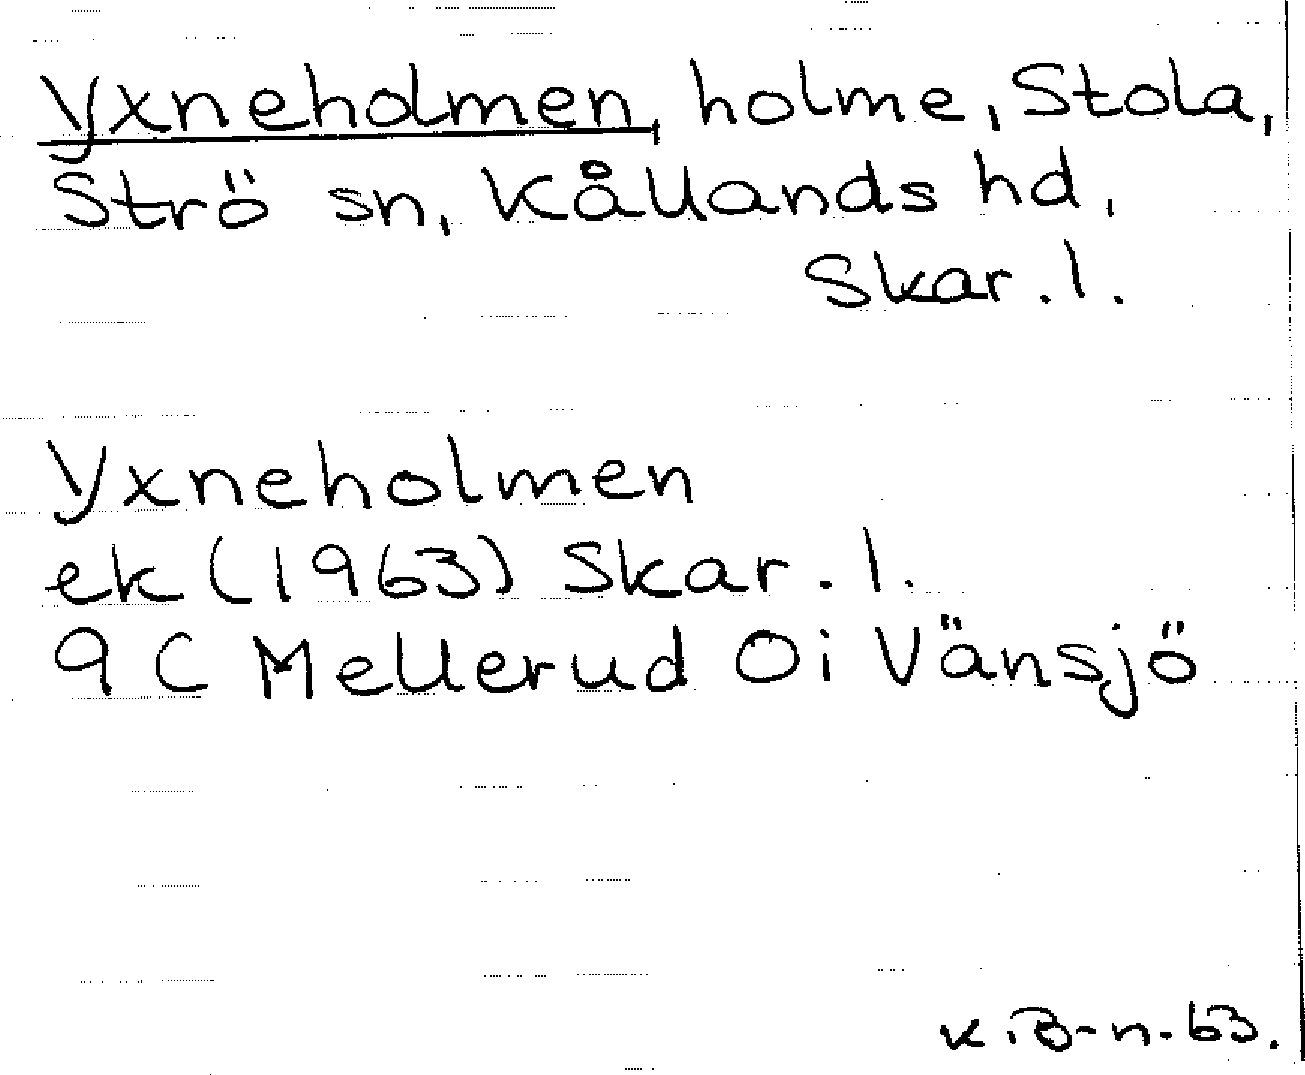 Yxneholmen, holme, Stola,
Strö sn, Kållands hd,
Skar. l.
Yxneholmen
ek (1963) Skar. l.
9 C Mellerud Oi Vänsjö
K.B-n. 63.